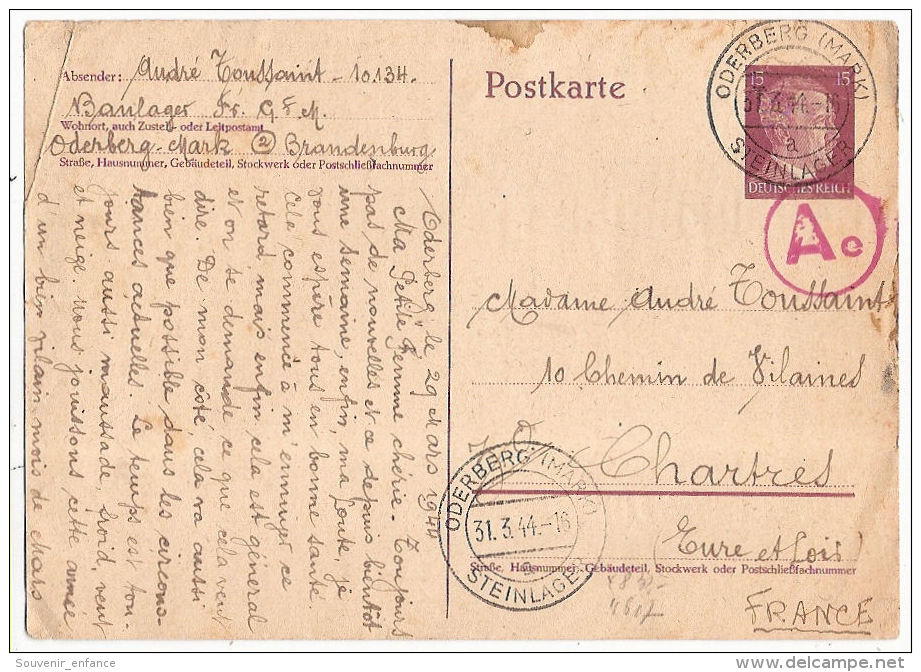 Absender: André Toussaint - 10134.
Baulager Fr. G F M.
Wohnort, auch Zustell- oder Leitpostamt
Oderberg-Mark ② Brandenburg
Straße, Hausnummer, Gebäudeteil, Stockwerk oder Postschließfachnummer
Oderberg, le 29 Mars 1944
Ma Petite Femme chérie. Toujours
pas de nouvelles et ce depuis bientôt
une semaine, enfin, ma Loute, je
vous espère tous en bonne santé
Cela commence à m'ennuyer ce
retard, mais enfin cela est général
et on se demande ce que cela veut
dire. De mon côté, cela va aussi
bien que possible dans les circons-
tances actuelles. Le temps est tou-
jours aussi maussade, froid, vent
et neige. Nous jouissons cette année
d'un bien vilain mois de Mars
Postkarte
15 15
DEUTSCHES REICH
ODERBERG (MARK)
31.3.44.-16
a
STEINLAGER
Ae
Madame André Toussaint
10 Chemin de Vilaines
à Chartres
Eure et Loir
Straße, Hausnummer, Gebäudeteil, Stockwerk oder Postschließfachnummer
FRANCE
ODERBERG (MARK)
31.3.44.-16
a
STEINLAGER
Souvenir_enfance
delcampe.net